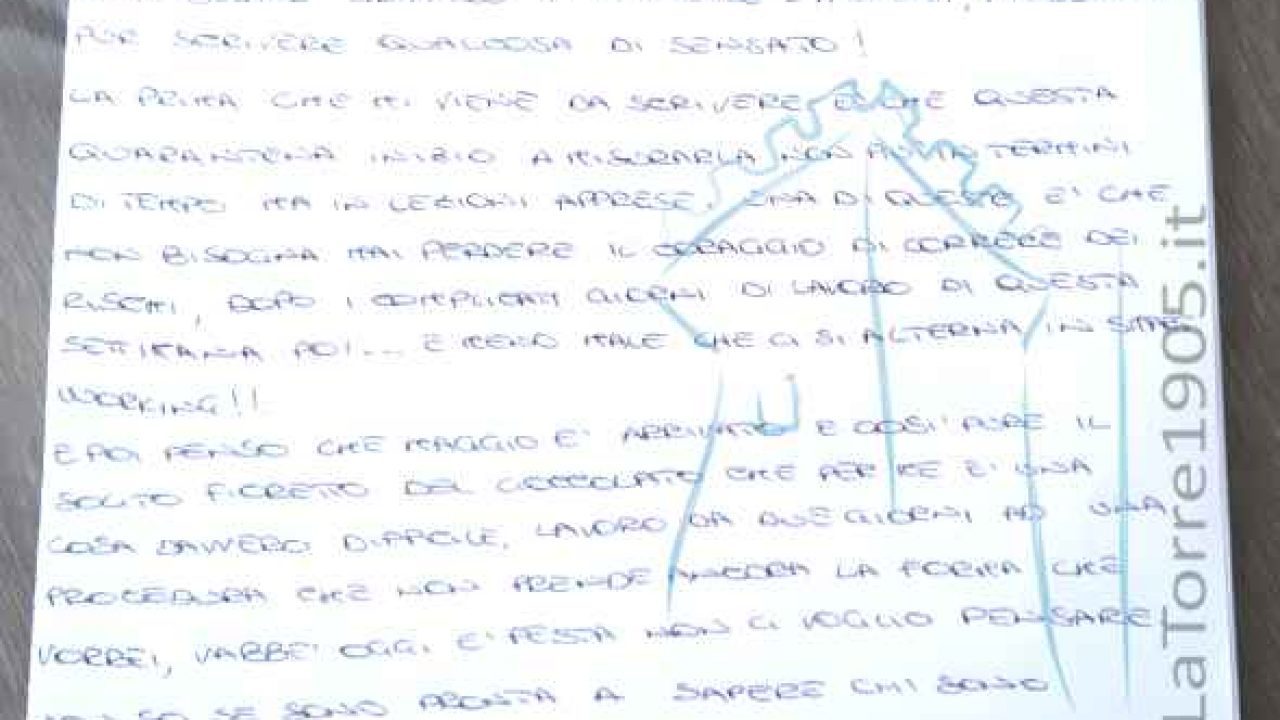 PER SCRIVERE QUALCOSA DI SENSATO!
LA PRIMA CHE MI VIENE DA SCRIVERE E' CHE QUESTA
QUARANTENA INIZIO A MISURARLA NON PIÙ IN TERMINI
DI TEMPO MA IN LEZIONI APPRESE. UNA DI QUESTE E' CHE
NON BISOGNA MAI PERDERE IL CORAGGIO DI CORRERE DEI
RISCHI, DOPO I COMPLICATI GIORNI DI LAVORO DI QUESTA
SETTIMANA POI... E MENO MALE CHE CI SI ALTERNA IN SMART
WORKING!!
E POI PENSO CHE MAGGIO E' ARRIVATO E COSI' PURE IL
SOLITO FIORETTO DEL CIOCCOLATO CHE PER ME E' UNA
COSA DAVVERO DIFFICILE, LAVORO DA DUE GIORNI AD UNA
PROCEDURA CHE NON PRENDE ANCORA LA FORMA CHE
VORREI, VABBE' OGGI E' FESTA NON CI VOGLIO PENSARE
NON SO SE SONO PRONTA A SAPERE CHI SONO
LaTorre1905.it